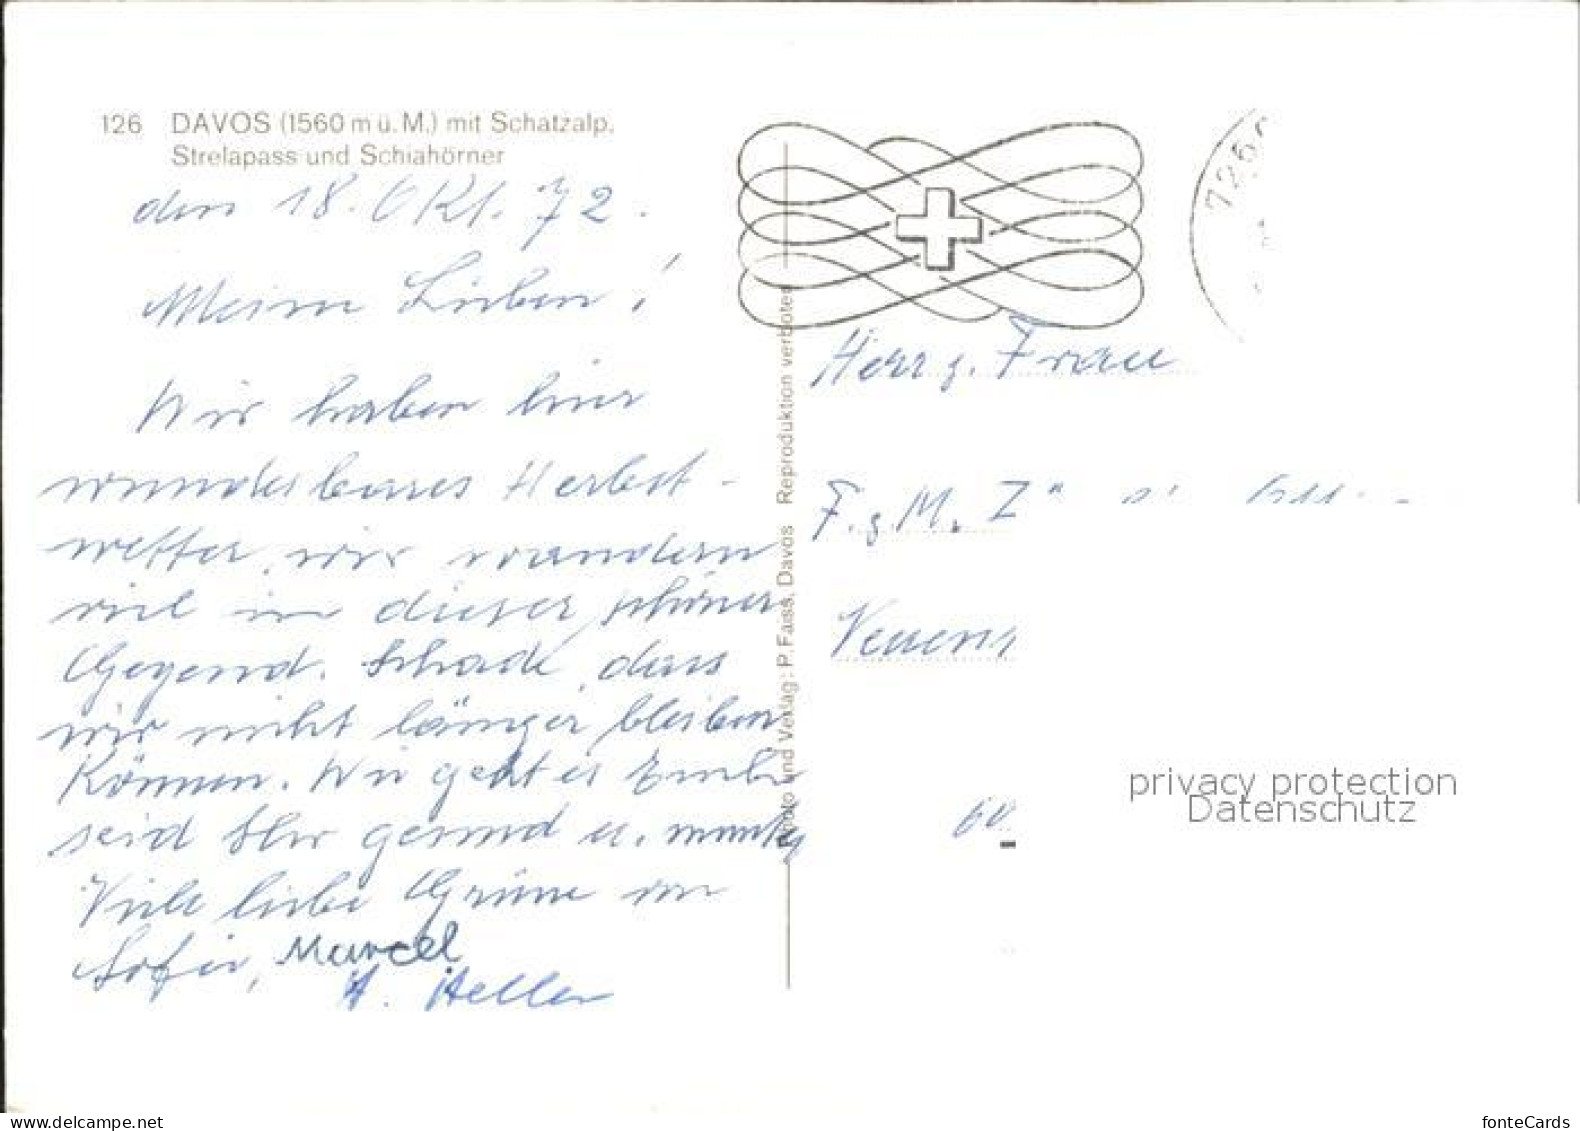 126 DAVOS (1560 m ü. M.) mit Schatzalp,
Strelapass und Schiahörner
den 18. Okt. 72.
Meine Lieben!
Wir haben hier
wunderbares Herbst-
wetter, wir wandern
viel in dieser schönen
Gegend. Schade, dass
wir nicht länger bleiben
können. Wie geht es Euch
seid Ihr gesund u. munter
Viele liebe Grüsse von
Sofie, Marcel
A. Heller
Photo und Verlag: P. Faiss, Davos Reproduktion verboten
Herr z. Frau
F. z. M. Z
60
privacy protection
Datenschutz
fonteCards